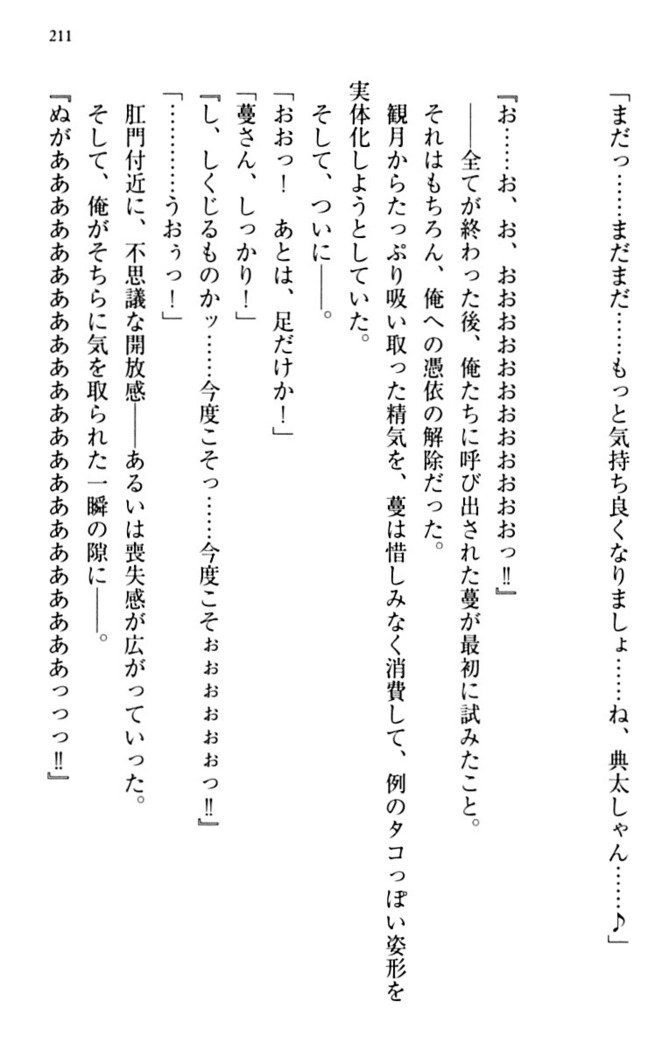 211
「まだっ……まだまだ……もっと気持ち良くなりましょ……ね、典太しゃん……♪」
『お……お、お、おおおおおおおおおおおおおっ‼』
――全てが終わった後、俺たちに呼び出された蔓が最初に試みたこと。
それはもちろん、俺への憑依の解除だった。
観月からたっぷり吸い取った精気を、蔓は惜しみなく消費して、例のタコっぽい姿形を
実体化しようとしていた。
そして、ついに――。
「おおっ！　あとは、足だけか！」
「蔓さん、しっかり！」
『し、しくじるものかッ……今度こそっ……今度こそぉぉぉぉぉぉっ‼』
「…………うおぅっ！」
肛門付近に、不思議な開放感――あるいは喪失感が広がっていった。
そして、俺がそちらに気を取られた一瞬の隙に――。
『ぬがあああああああああああああああああああああああああっっっ‼』